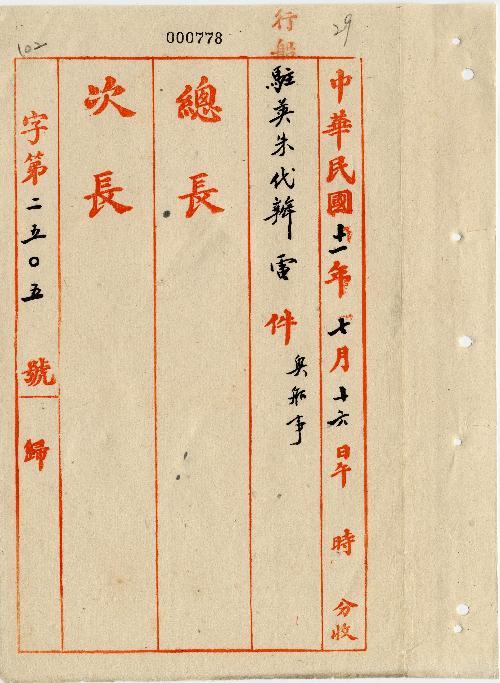 000778
29
102
行船
中華民國十一年七月十六日午 時 分收
駐英朱代辦電 件
奧船事
總長
次長
字第二五〇五號 歸